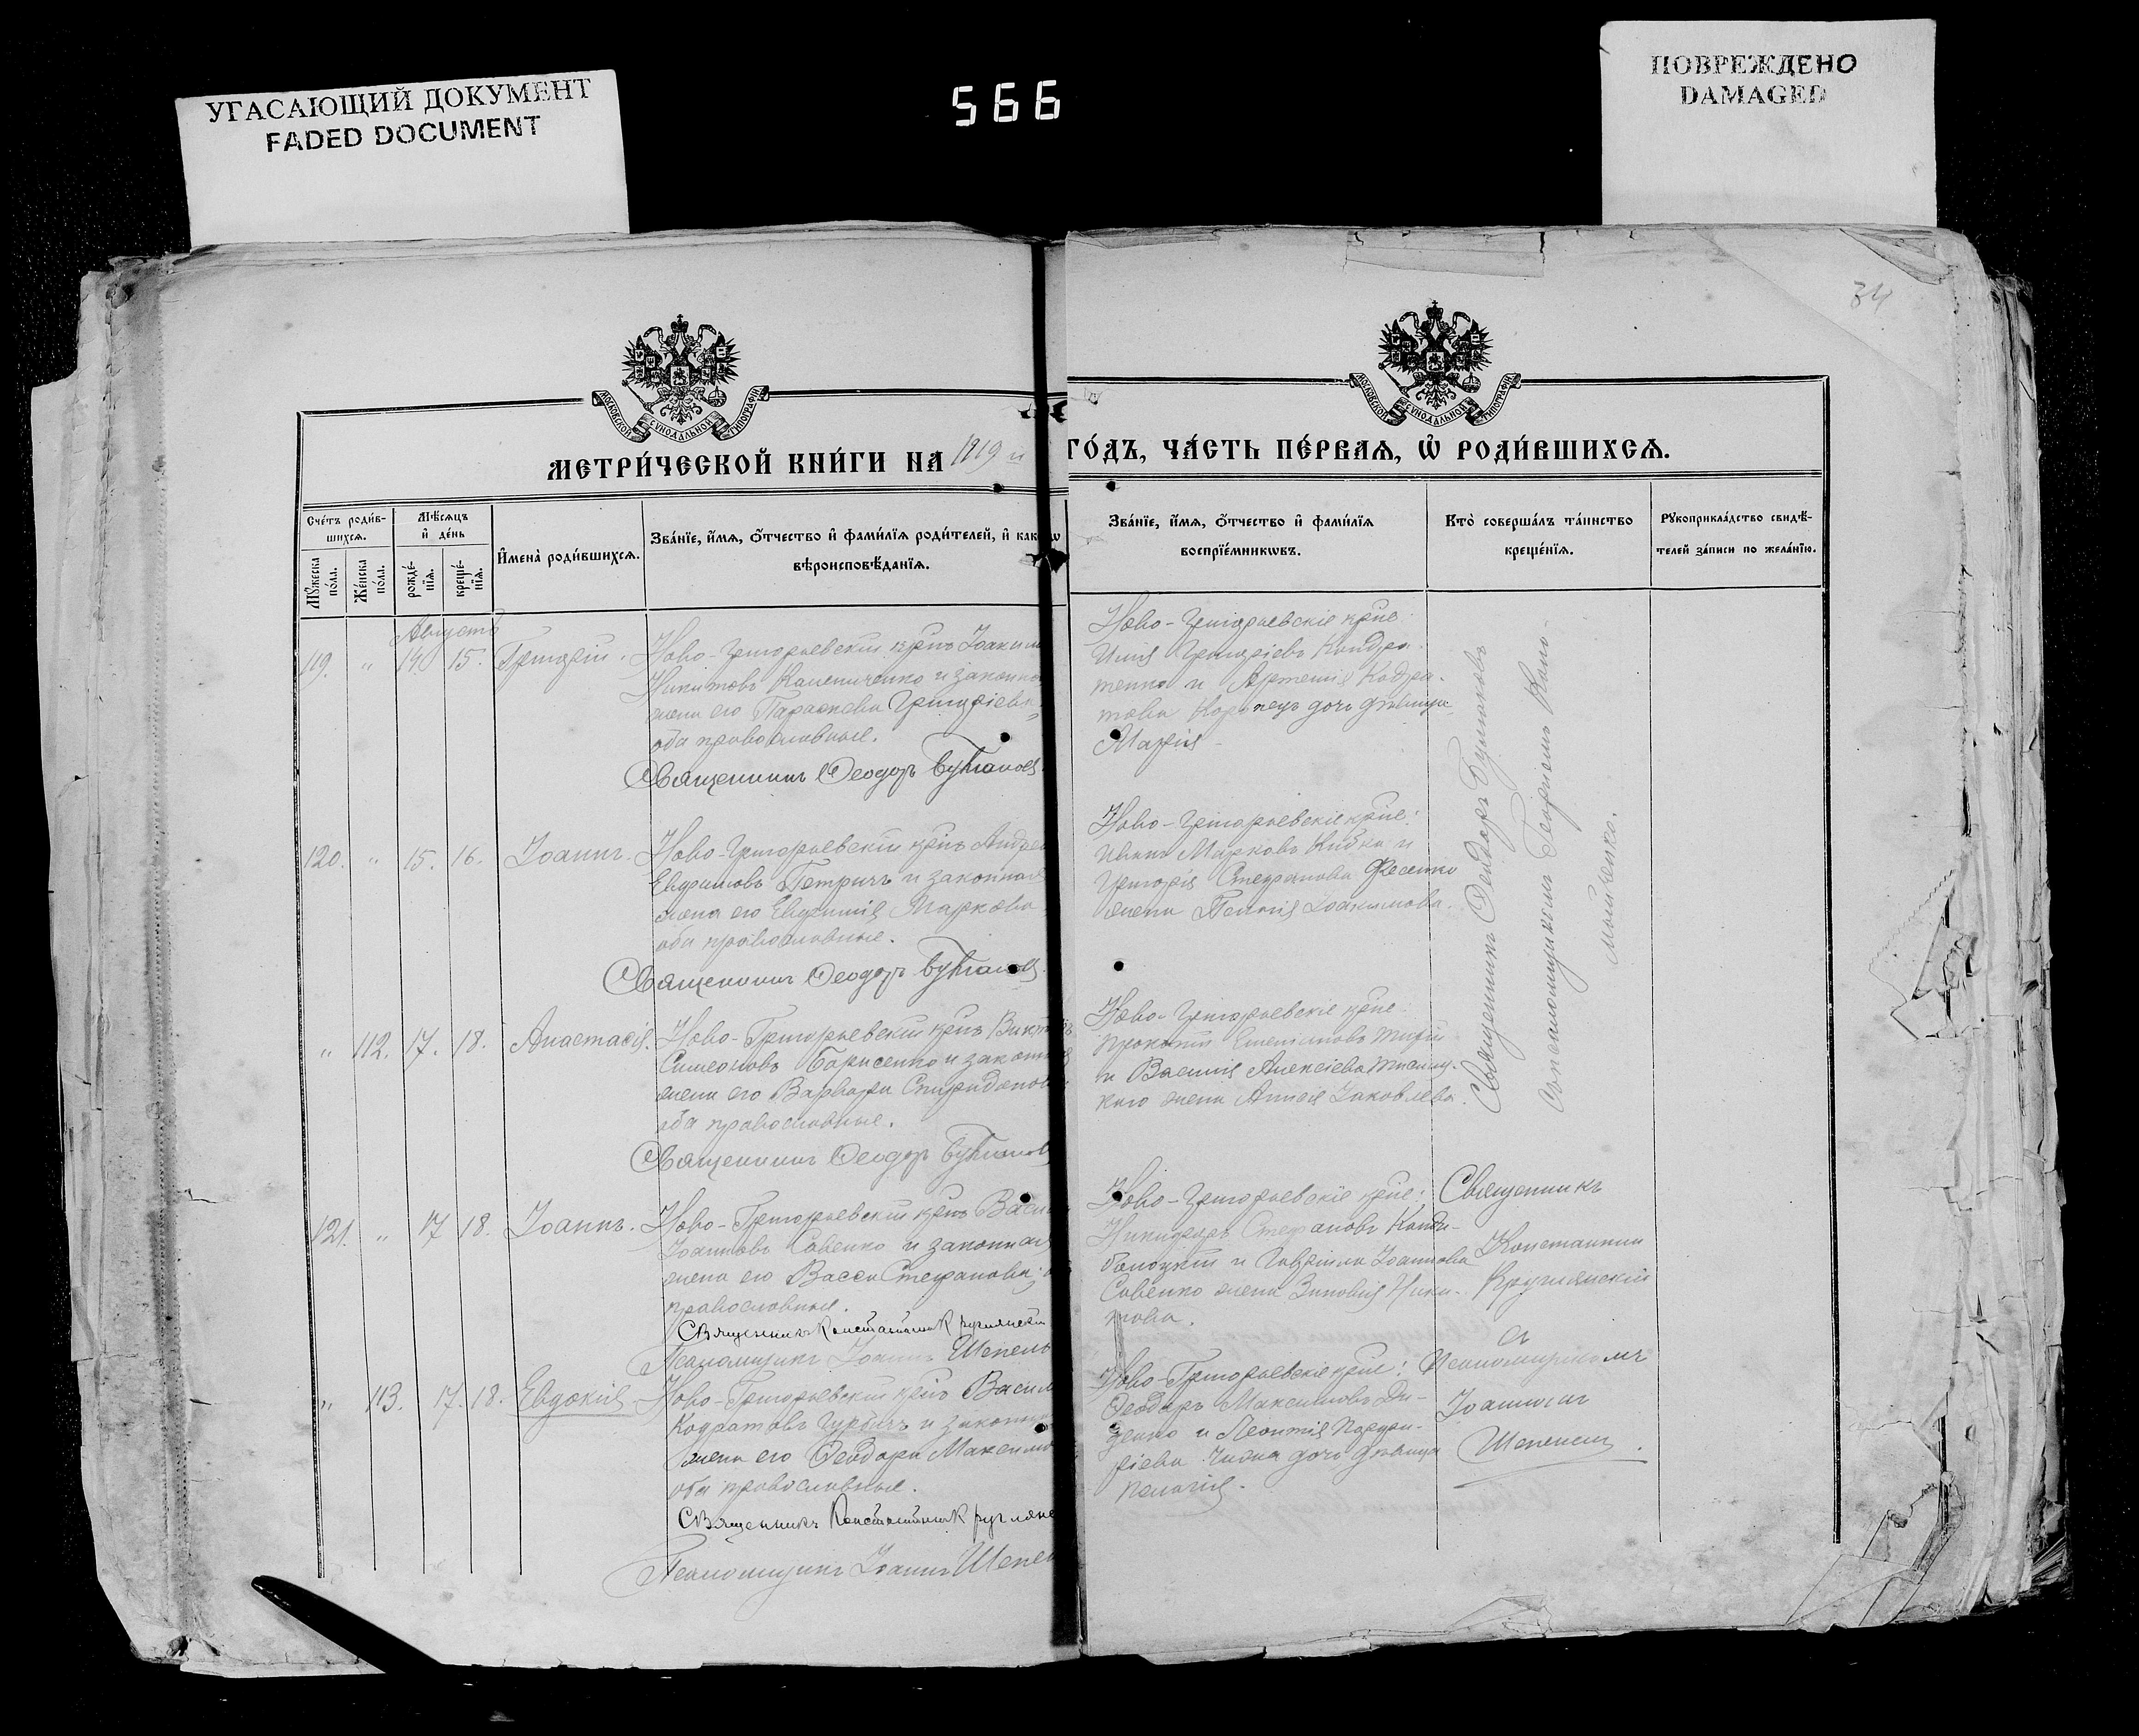 УГАСАЮЩИЙ ДОКУМЕНТ
FADED DOCUMENT
566
ПОВРЕЖДЕНО
DAMAGED
34
МОСКОВСКОЙ СѴНОДАЛЬНОЙ ТИПОГРАФІИ
МОСКОВСКОЙ СѴНОДАЛЬНОЙ ТИПОГРАФІИ
МЕТРИ́ЧЕСКОЙ КНИ́ГИ НА 1919 й
ГО́ДЪ, ЧА́СТЬ ПЕ́РВАѦ, Ѡ҆ РОДИ́ВШИХСѦ.
Сче́тъ роди́в-
шихсѧ.
Мꙋ́жеска
по́ла.
Же́нска
по́ла.
Мѣ́сѧцъ
и҆ де́нь
рожде́-
нїѧ.
креще́-
нїѧ.
И҆мена̀ роди́вшихсѧ.
Зва́нїе, и҆́мѧ, ѻ҆́тчество и҆ фами́лїѧ роди́телей, и҆ как
вѣроисповѣ́данїѧ.
Зва́нїе, и҆́мѧ, ѻ҆́тчество и҆ фами́лїѧ
воспрїе́мникѡвъ.
Кто̀ соверша́лъ та́инство
креще́нїѧ.
Рꙋкоприкла́дство свидѣ́-
телей за́писи по жела́нїю.
Августъ
119. " 14. 15. Григорій. Ново-Григорьевскій крнъ Іоаким
Никитовъ Калениченко и законна
жена его Параскева Григоріева
оба православные.
Священникъ Ѳеодоръ
Ново-Григорьевскіе крне:
Илія Григоріевъ Кондра-
тенко и Артемія Кодра-
това дочь дѣвица
Марія
120. " 15. 16. Іоаннъ. Ново-Григорьевскій крнъ Андрей
Евфимовъ Петричъ и законная
жена его Евфимія Маркова
оба православные.
Священникъ Ѳеодоръ
Ново-Григорьевскіе крне:
Иванъ Марковъ и
Григорія Стефанова Фесенко
жена Іоакимова.
" 112. 17. 18. Анастасія. Ново-Григорьевскій крнъ
Симеоновъ Борисенко и законная
жена его Варвара Спиридонова
оба православные.
Священникъ Ѳеодоръ
Ново-Григорьевскіе крне:
Прокопій
и Василія Алексіева
жена Іаковлева.
Священникъ Ѳеодоръ
Сопсаломщикомъ Георгіемъ
121. " 17 18. Іоаннъ. Ново-Григорьевскій крнъ Васи
Іоанновъ Савенко и законная
жена его Васса Стефанова;
православные.
Священникъ Константинъ Круглянскій
Псаломщикъ Іоаннъ Шепель
Ново-Григорьевскіе крне:
Никифоръ Стефановъ
и Гавріила Іоаннова
Савенко жена Зиновія Ники-
това.
Священникъ
Константинъ
Круглянскій
съ
Псаломщикомъ
Іоанномъ
Шепелемъ.
" 113. 17. 18. Евдокія Ново-Григорьевскій крнъ Васил
Кодратовъ и законная
жена его Ѳеодора Максимо
оба православные.
Священникъ Константинъ Круглянс
Псаломщикъ Іоаннъ Шепел
Ново-Григорьевскіе крне:
Ѳеодоръ Максимовъ Ди-
денко и Леонтія Порфи-
ріева дочь дѣвица
Пелагія.